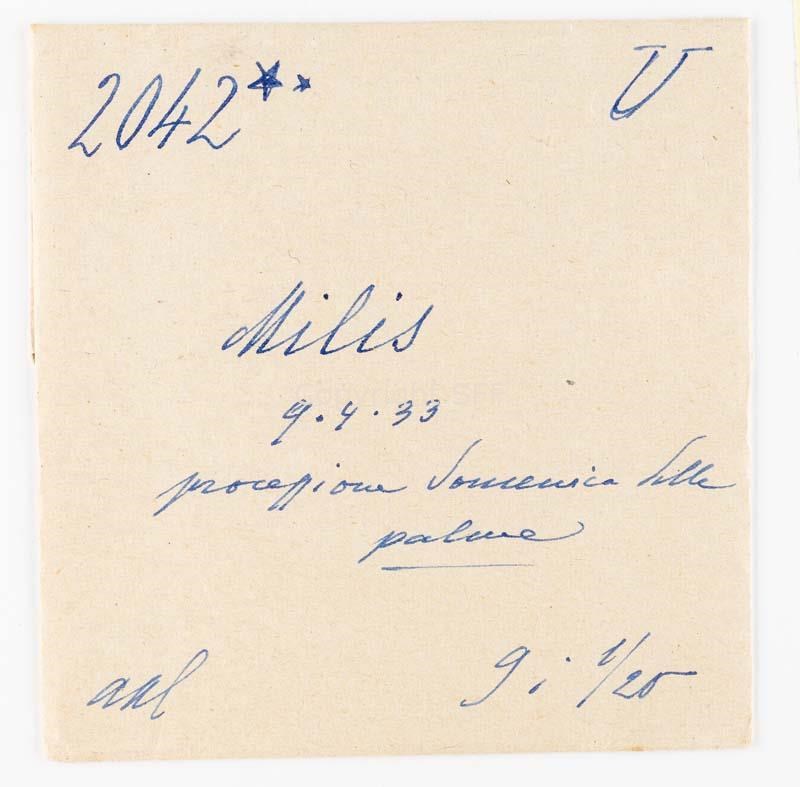 2042** U
Milis
9.4.33
processione domenica delle
palme
9 i 1/25